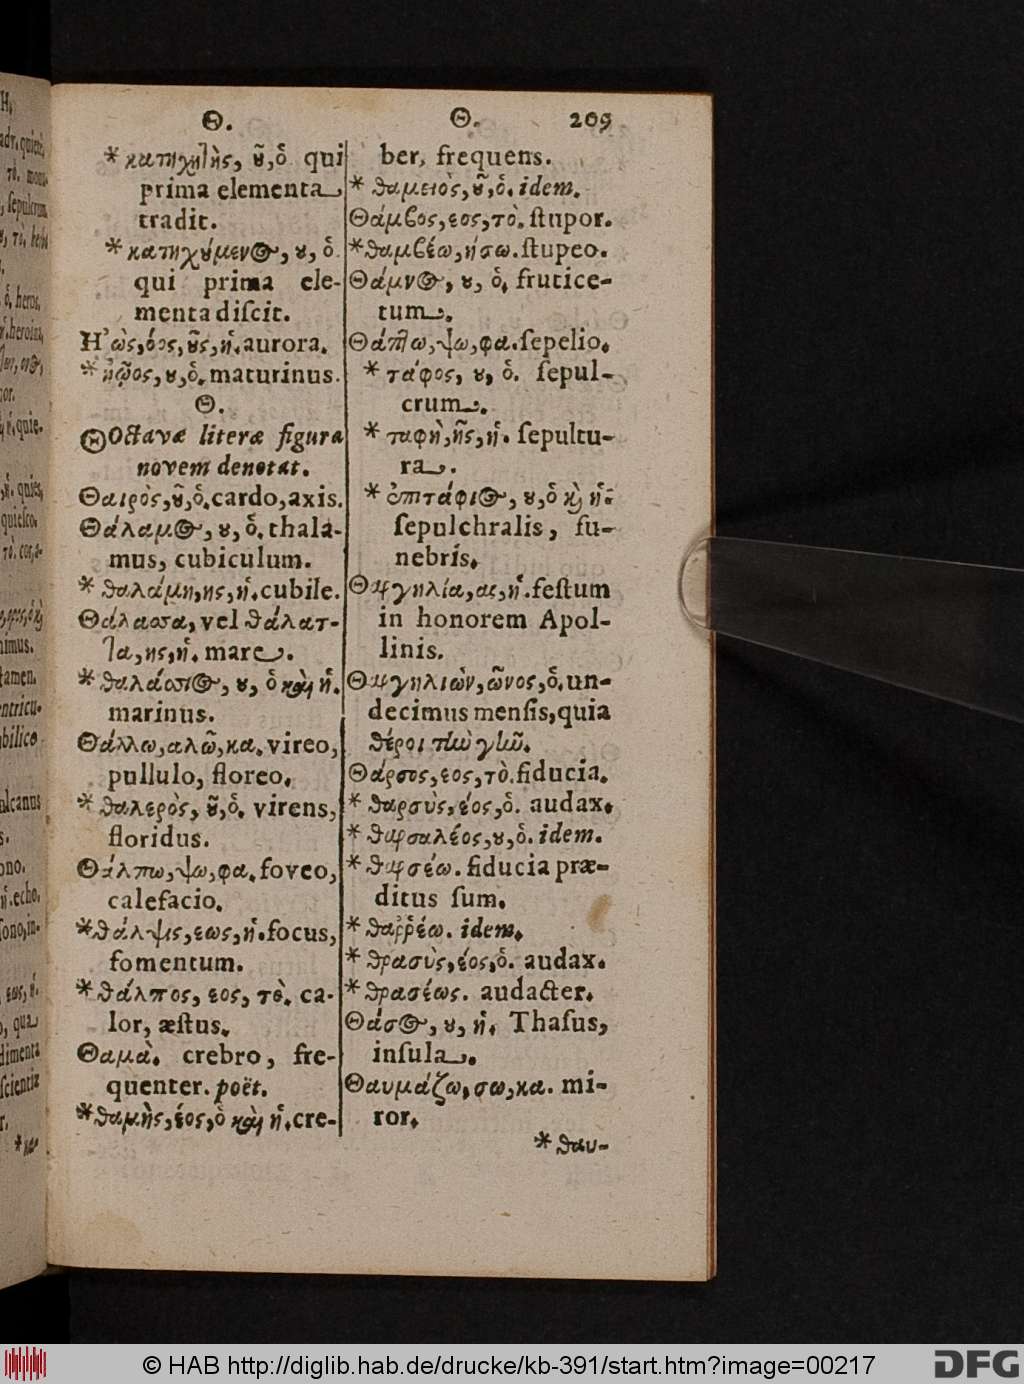 Θ.
Θ. 209
* κατηχητὴς, ȣ͂, ὁ. qui
prima elementa
tradit.
* κατηχȣ́μενος, ȣ, ὁ.
qui prima ele-
menta diſcit.
Η᾿ὼς, όος, ȣ͂ς, ἡ. aurora.
* ἠῷος, ȣ, ὁ. maturinus.
Θ.
Θ Octavæ literæ figura
novem denotat.
Θαιρὸς, ȣ͂, ὁ. cardo, axis.
Θάλαμος, ȣ, ὁ. thala-
mus, cubiculum.
* θαλάμη, ης, ἡ. cubile.
Θάλασσα, vel θάλατ-
τα, ης, ἡ. mare.
* θαλάσσιος, ȣ, ὁ καὶ ἡ.
marinus.
Θάλλω, αλῶ, κα. vireo,
pullulo, floreo.
* θαλερὸς, ȣ͂, ὁ. virens,
floridus.
Θάλπω, ψω, φα. foveo,
calefacio.
* θάλψις, εως, ἡ. focus,
fomentum.
* θάλπος, εος, τὸ. ca-
lor, æſtus.
Θαμὰ. crebro, fre-
quenter. poët.
* θαμὴς, έος, ὁ καὶ ἡ. cre-
ber, frequens.
* θαμειὸς, ȣ͂, ὁ. idem.
Θάμβος, εος, τὸ. ſtupor.
* θαμβέω, ήσω. ſtupeo.
Θάμνος, ȣ, ὁ. frutice-
tum.
Θάπτω, ψω, φα. ſepelio.
* τάφος, ȣ, ὁ. ſepul-
crum.
* ταφὴ, ῆς, ἡ. ſepultu-
ra.
* ἐπιτάφιος, ȣ, ὁ καὶ ἡ.
ſepulchralis, fu-
nebris.
Θαργηλία, ας, ἡ. feſtum
in honorem Apol-
linis.
Θαργηλιὼν, ῶνος, ὁ. un-
decimus menſis, quia
θέροι τὴν γῆν.
Θάρσος, εος, τὸ. fiducia.
* θαρσὺς, έος, ὁ. audax.
* θαρσαλέος, ȣ, ὁ. idem.
* θαρσέω. fiducia præ-
ditus ſum.
* θαῤῥέω. idem.
* θρασὺς, έος, ὁ. audax.
* θρασέως. audacter.
Θάσος, ȣ, ἡ. Thaſus,
inſula.
Θαυμάζω, σω, κα. mi-
ror.
* θαυ-
© HAB http://diglib.hab.de/drucke/kb-391/start.htm?image=00217
DFG